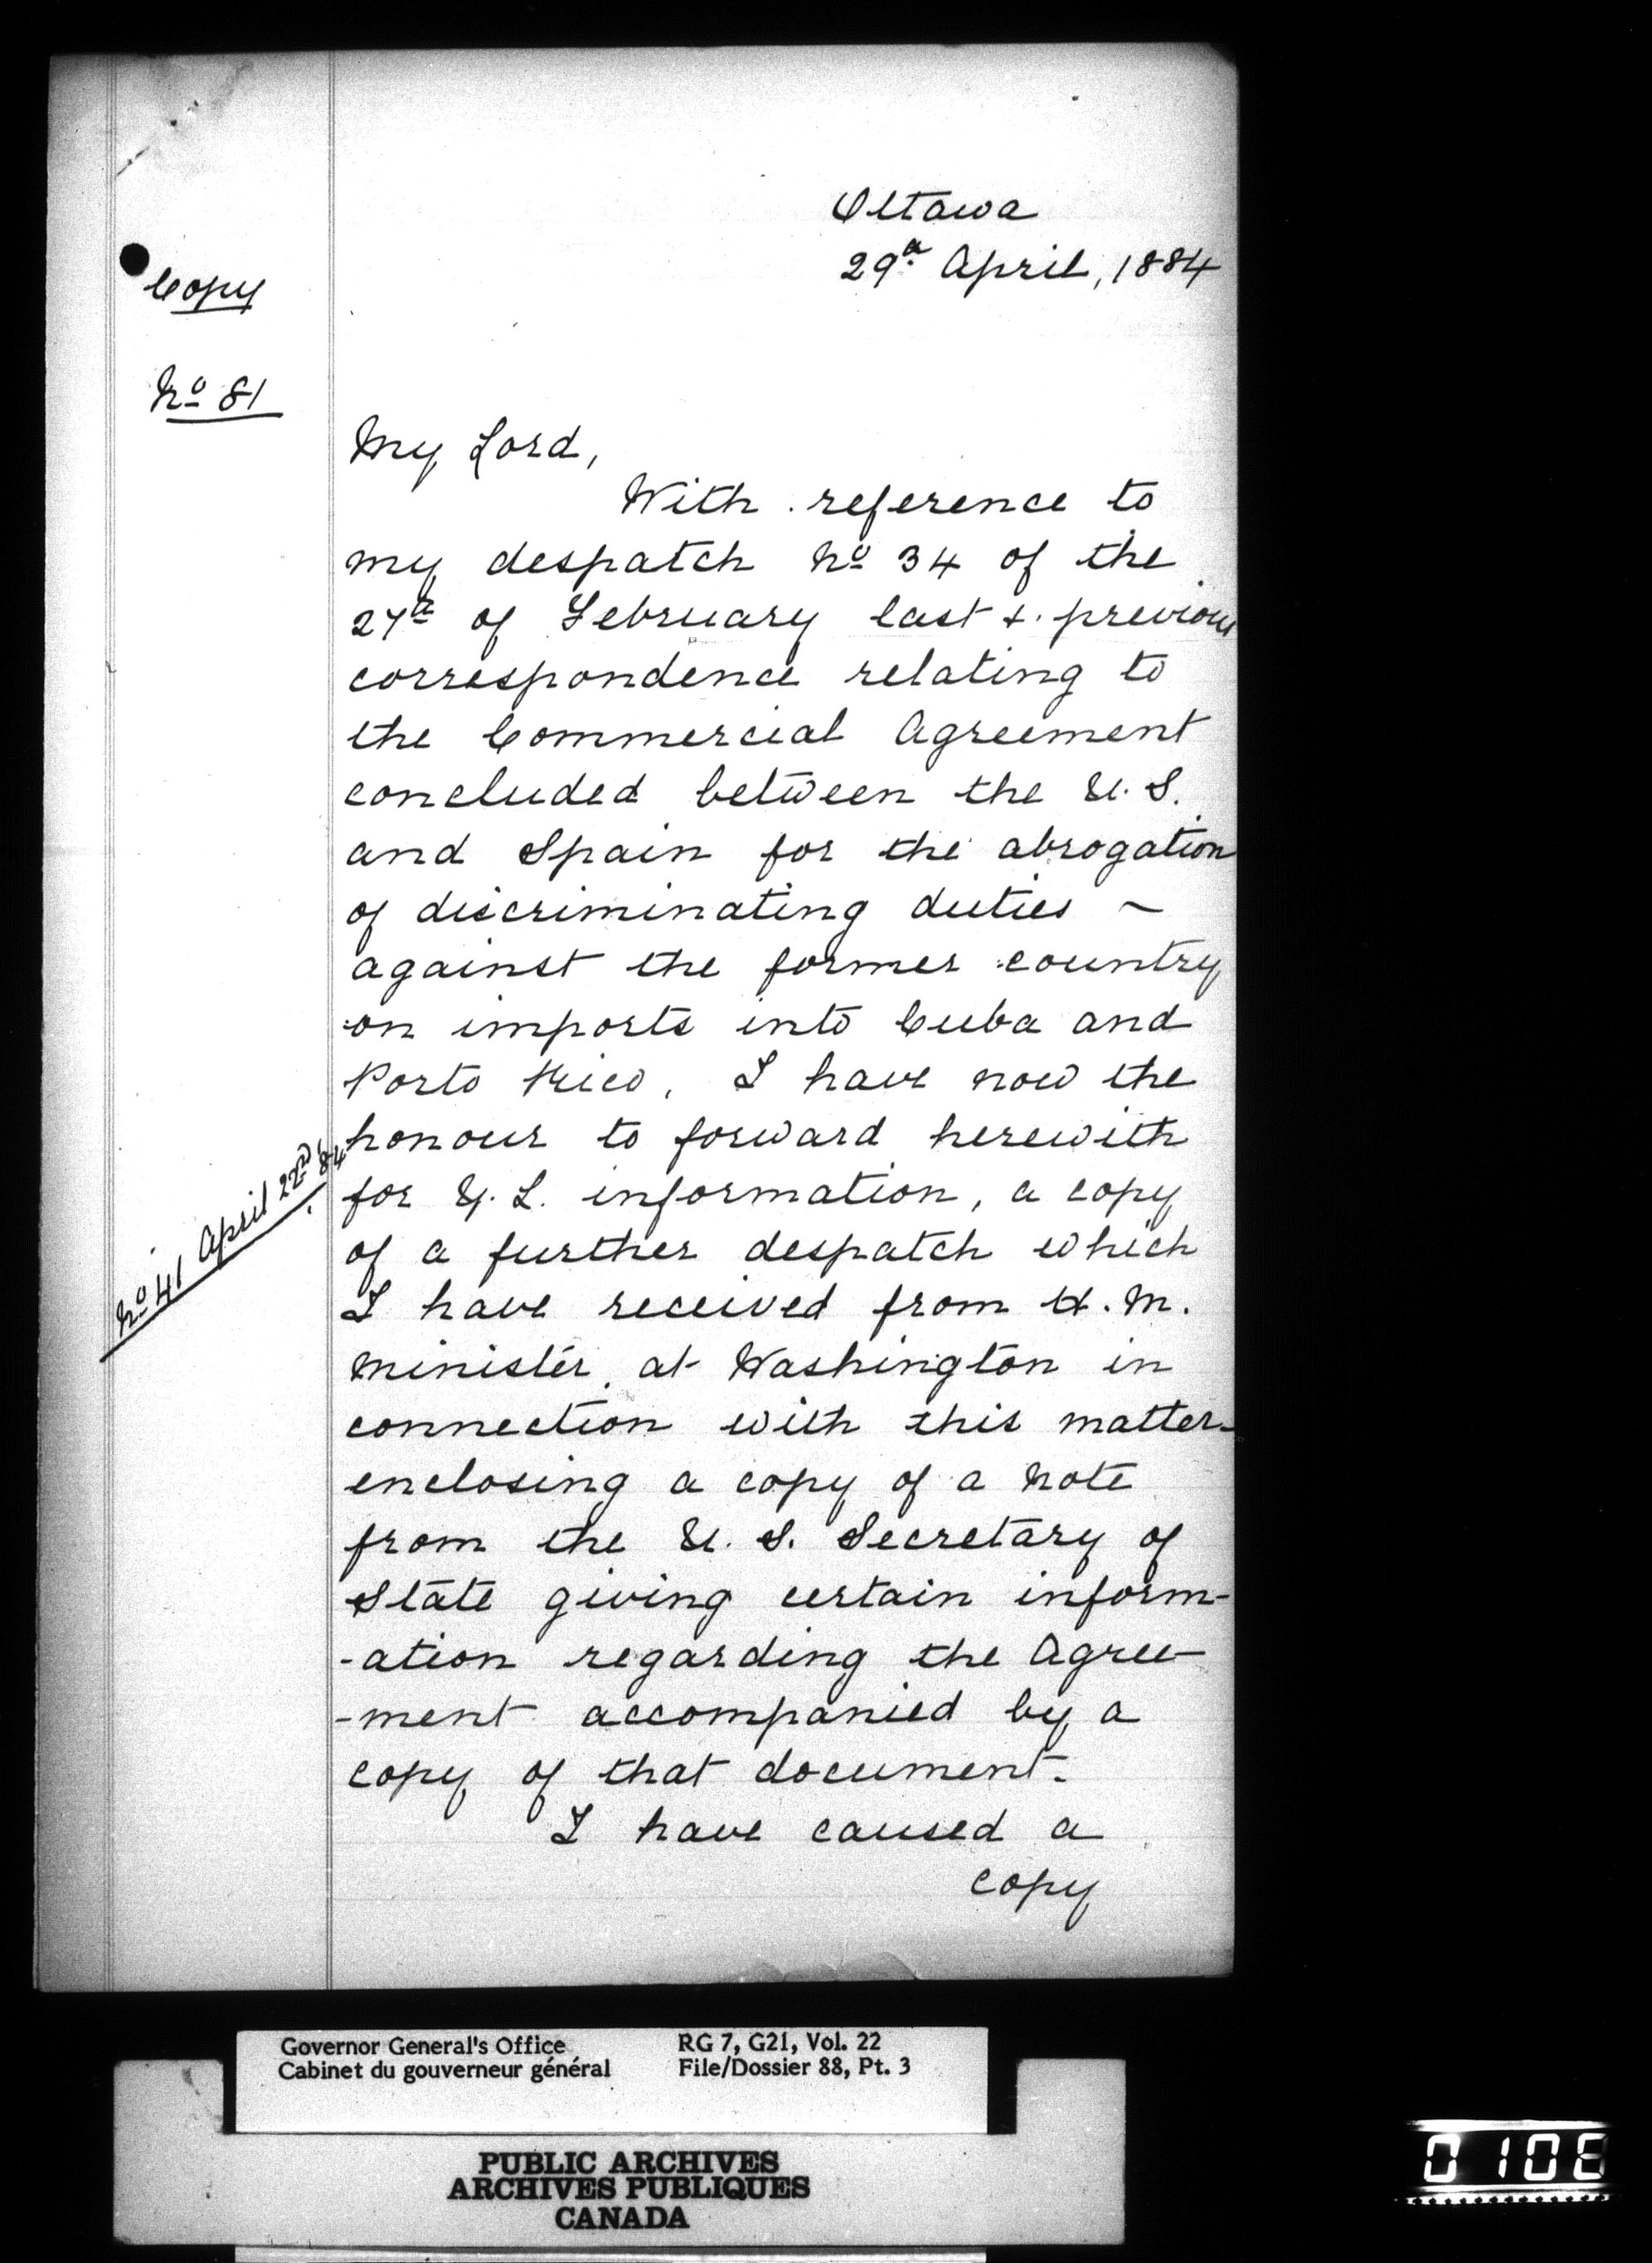 Ottawa
29th April, 1884
Copy
No 81
My Lord,
With reference to
my despatch No 34 of the
27th of February last & previous
correspondence relating to
the Commercial Agreement
concluded between the U.S.
and Spain for the abrogation
of discriminating duties ~
against the former country
on imports into Cuba and
Porto Rico, I have now the
honour to forward herewith
No 41 April 22nd 84
for Y.L. information, a copy
of a further despatch which
I have received from H.M.
Minister at Washington in
connection with this matter
enclosing a copy of a Note
from the U.S. Secretary of
State giving certain inform-
-ation regarding the Agree-
-ment accompanied by a
copy of that document.
I have caused a
copy
Governor General's Office
Cabinet du gouverneur général
RG 7, G21, Vol. 22
File/Dossier 88, Pt. 3
PUBLIC ARCHIVES
ARCHIVES PUBLIQUES
CANADA